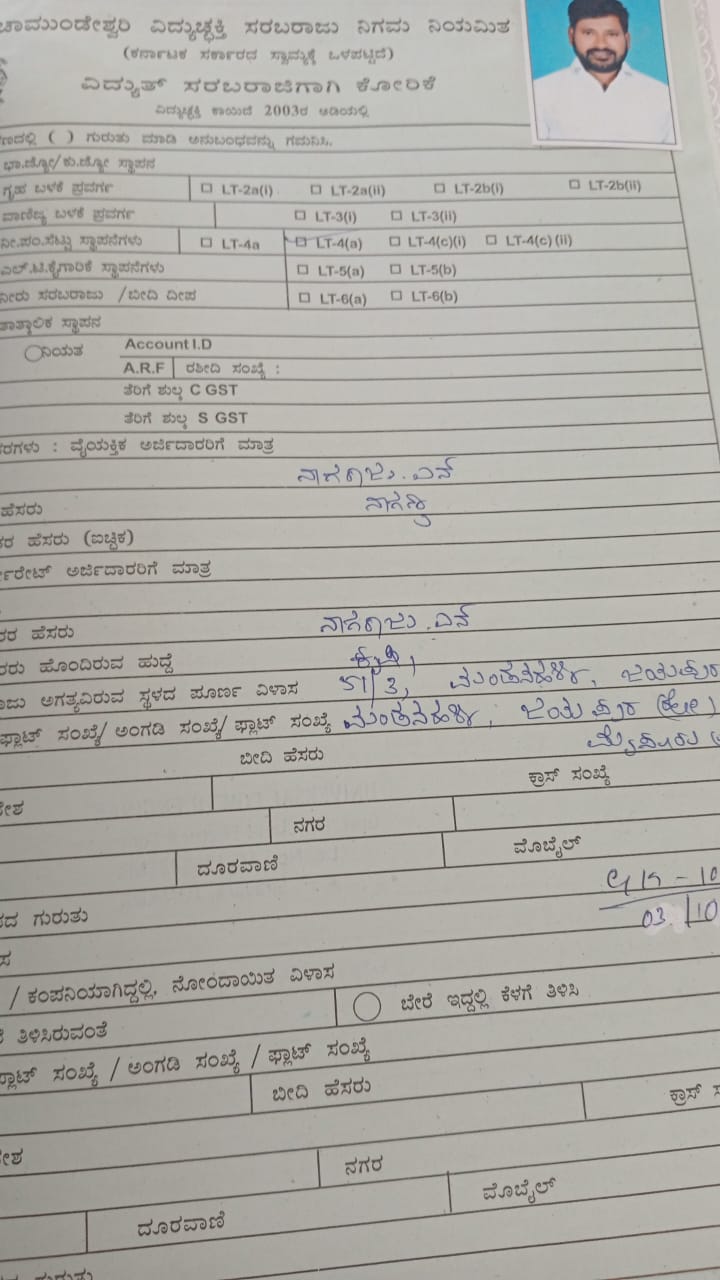 ಚಾಮುಂಡೇಶ್ವರಿ ವಿದ್ಯುಚ್ಛಕ್ತಿ ಸರಬರಾಜು ನಿಗಮ ನಿಯಮಿತ
(ಕರ್ನಾಟಕ ಸರ್ಕಾರದ ಸ್ವಾಮ್ಯಕ್ಕೆ ಒಳಪಟ್ಟಿದೆ)
ವಿದ್ಯುತ್ ಸರಬರಾಜಿಗಾಗಿ ಕೋರಿಕೆ
ವಿದ್ಯುಚ್ಛಕ್ತಿ ಕಾಯಿದೆ 2003ರ ಅಡಿಯಲ್ಲಿ
( ) ಗುರುತು ಮಾಡಿ ಅನುಬಂಧವನ್ನು ಗಮನಿಸಿ.
ಸ್ಥಾಪನ
ಗೃಹ ಬಳಕೆ ಪ್ರವರ್ಗ LT-2a(i) LT-2a(ii) LT-2b(i) LT-2b(ii)
ವಾಣಿಜ್ಯ ಬಳಕೆ ಪ್ರವರ್ಗ LT-3(i) LT-3(ii)
ನೀ.ಪಂ.ಸೆಟ್ಟು ಸ್ಥಾಪನೆಗಳು LT-4a LT-4(a) LT-4(c)(i) LT-4(c)(ii)
ಎಲ್.ಟಿ.ಕೈಗಾರಿಕೆ ಸ್ಥಾಪನೆಗಳು LT-5(a) LT-5(b)
ನೀರು ಸರಬರಾಜು /ಬೀದಿ ದೀಪ LT-6(a) LT-6(b)
ತಾತ್ಕಾಲಿಕ ಸ್ಥಾಪನ
ನಿಯತ Account I.D
A.R.F ರಶೀದಿ ಸಂಖ್ಯೆ :
ತೆರಿಗೆ ಶುಲ್ಕ C GST
ತೆರಿಗೆ ಶುಲ್ಕ S GST
ವೈಯಕ್ತಿಕ ಅರ್ಜಿದಾರರಿಗೆ ಮಾತ್ರ
ನಾಗರಾಜು. ಎನ್
ಹೆಸರು
ಹೆಸರು (ಐಚ್ಛಿಕ)
ಅರ್ಜಿದಾರರಿಗೆ ಮಾತ್ರ
ಹೆಸರು ನಾಗರಾಜು. ಎನ್
ಹೊಂದಿರುವ ಹುದ್ದೆ
ಅಗತ್ಯವಿರುವ ಸ್ಥಳದ ಪೂರ್ಣ ವಿಳಾಸ 51/3, ಜಯಪುರ
ಫ್ಲಾಟ್ ಸಂಖ್ಯೆ/ ಅಂಗಡಿ ಸಂಖ್ಯೆ/ ಫ್ಲಾಟ್ ಸಂಖ್ಯೆ ಜಯಪುರ (ಹೋ)
ಬೀದಿ ಹೆಸರು ಮೈಸೂರು
ಕ್ರಾಸ್ ಸಂಖ್ಯೆ
ನಗರ
ದೂರವಾಣಿ ಮೊಬೈಲ್
ಗುರುತು
03/10
/ ಕಂಪನಿಯಾಗಿದ್ದಲ್ಲಿ, ನೋಂದಾಯಿತ ವಿಳಾಸ
ತಿಳಿಸಿರುವಂತೆ ಬೇರೆ ಇದ್ದಲ್ಲಿ ಕೆಳಗೆ ತಿಳಿಸಿ
ಫ್ಲಾಟ್ ಸಂಖ್ಯೆ / ಅಂಗಡಿ ಸಂಖ್ಯೆ / ಫ್ಲಾಟ್ ಸಂಖ್ಯೆ
ಬೀದಿ ಹೆಸರು ಕ್ರಾಸ್
ನಗರ
ದೂರವಾಣಿ ಮೊಬೈಲ್